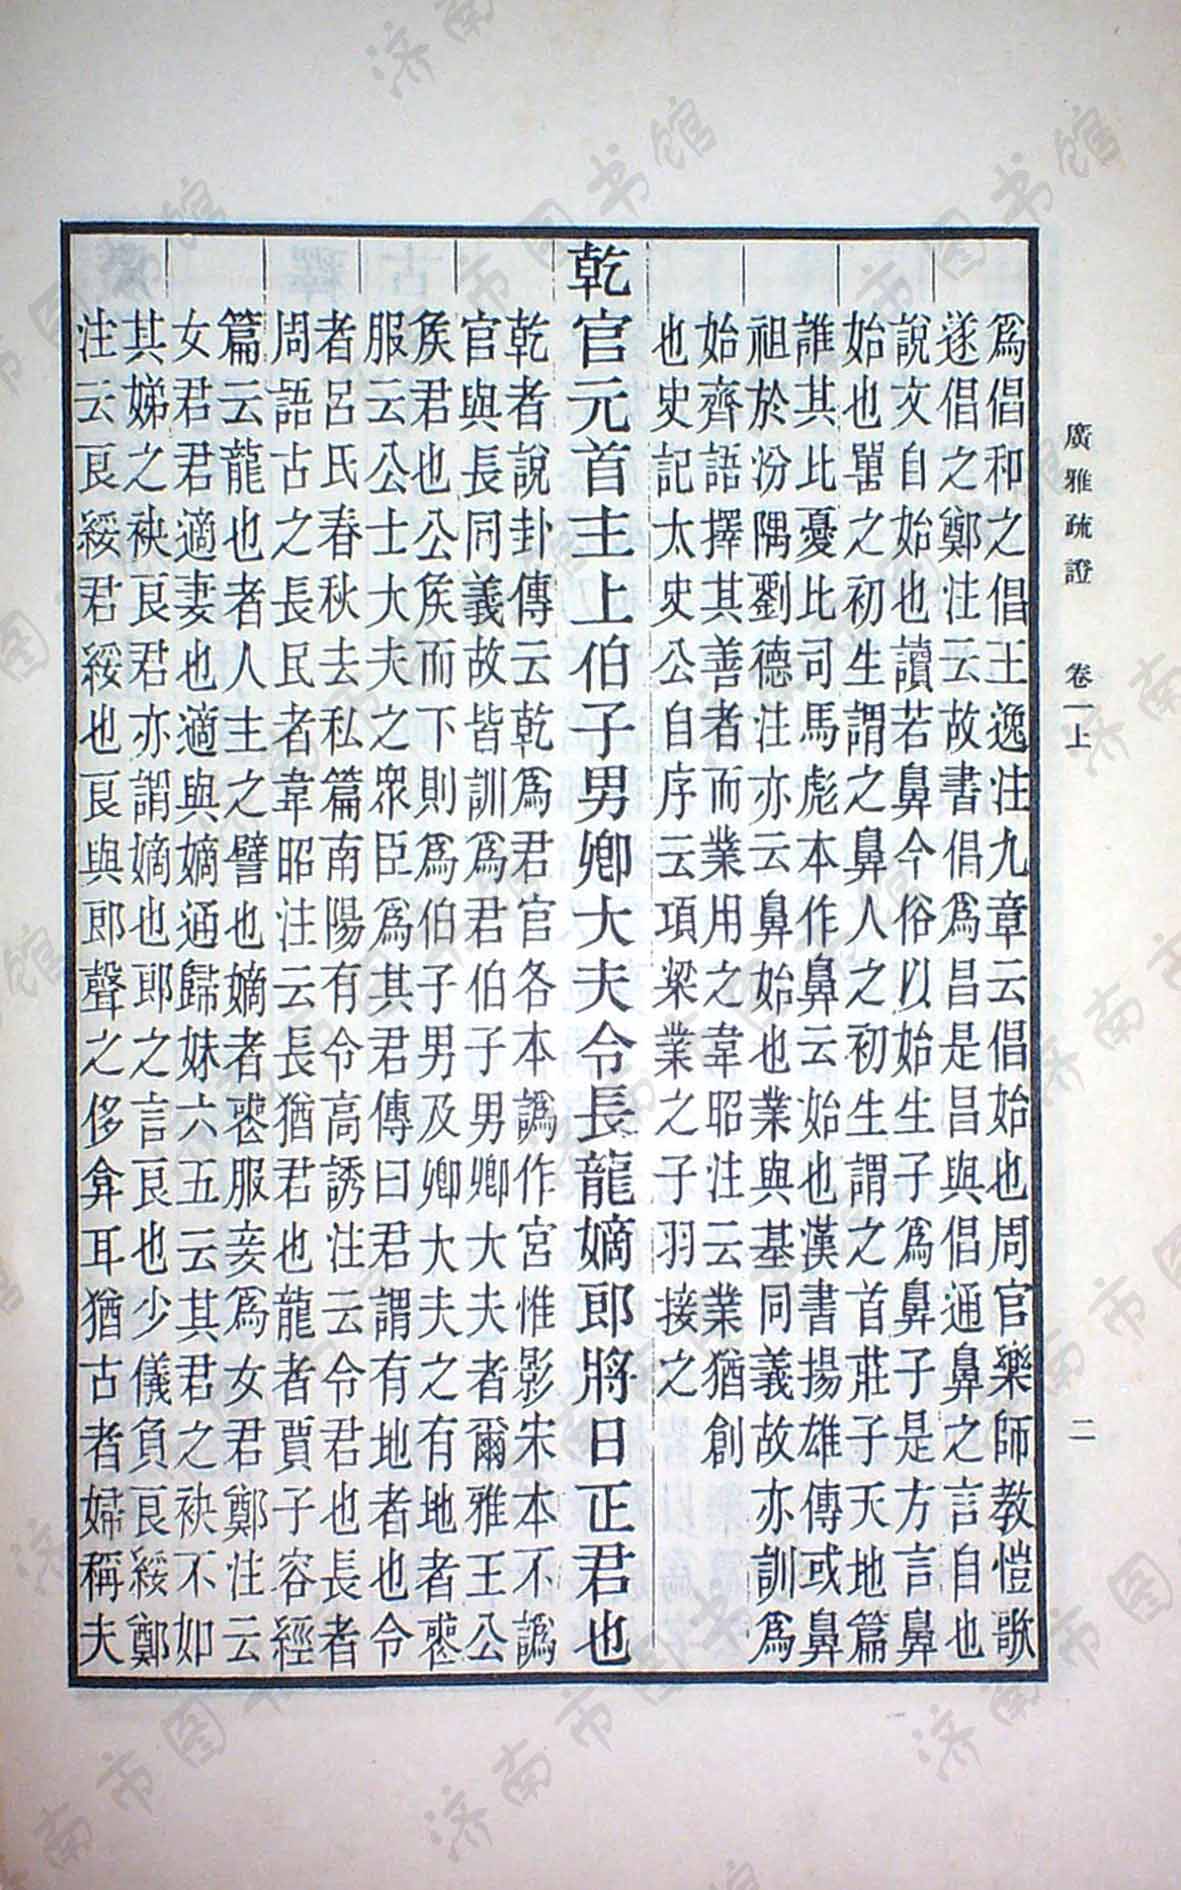 廣雅疏證　卷一上　二
爲倡和之倡王逸注九章云倡始也周官樂師教愷歌
遂倡之鄭注云故書倡爲昌是昌與倡通鼻之言自也
說文自始也讀若鼻今俗以始生子爲鼻子是方言鼻
始也嘼之初生謂之鼻人之初生謂之首莊子天地篇
誰其比憂比司馬彪本作鼻云始也漢書揚雄傳或鼻
祖於汾隅劉德注亦云鼻始也業與基同義故亦訓爲
始齊語擇其善者而業用之韋昭注云業猶創
也史記太史公自序云項梁業之子羽接之
乾官元首主上伯子男卿大夫令長龍嫡郎將日正君也
乾者說卦傳云乾爲君官各本譌作宮惟影宋本不譌
官與長同義故皆訓爲君伯子男卿大夫者爾雅王公
矦君也公矦而下則爲伯子男及卿大夫之有地者喪
服云公士大夫之眾臣爲其君傳曰君謂有地者也令
者呂氏春秋去私篇南陽有令高誘注云令君也長者
周語古之長民者韋昭注云長猶君也龍者賈子容經
篇云龍也者人主之譬也嫡者喪服妾爲女君鄭注云
女君君適妻也適與嫡通歸妹六五云其君之袂不如
其娣之袂良君亦謂嫡也郎之言良也少儀負良綏鄭
注云良綏君綏也良與郎聲之侈弇耳猶古者婦稱夫
济南市图书馆